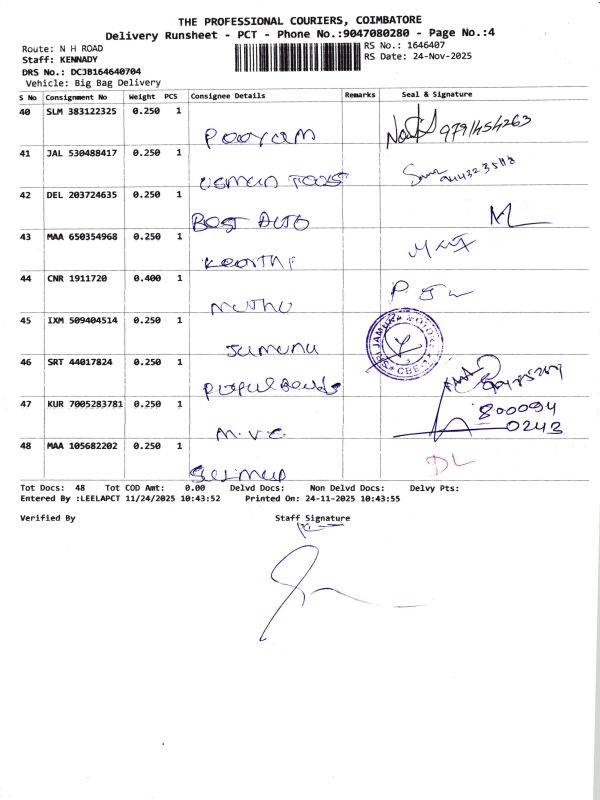 THE PROFESSIONAL COURIERS, COIMBATORE
Delivery Runsheet - PCT - Phone No.:9047080280 - Page No.:4
Route: N H ROAD
RS No.: 1646407
Staff: KENNADY
RS Date: 24-Nov-2025
DRS No.: DCJB164640704
Vehicle: Big Bag Delivery
S No Consignment No Weight PCS Consignee Details Remarks Seal & Signature
40 SLM 383122325 0.250 1
Pooram
41 JAL 530488417 0.250 1
Usman Tools
42 DEL 203724635 0.250 1
Best Auto
43 MAA 650354968 0.250 1
Keerthi
44 CNR 1911720 0.400 1
Muthu
45 IXM 509404514 0.250 1
Jamuna
46 SRT 44017824 0.250 1
47 KUR 7005283781 0.250 1
800094
0243
M.V.C
48 MAA 105682202 0.250 1
DL
Tot Docs: 48 Tot COD Amt: 0.00 Delvd Docs: Non Delvd Docs: Delvy Pts:
Entered By :LEELAPCT 11/24/2025 10:43:52 Printed On: 24-11-2025 10:43:55
Verified By Staff Signature